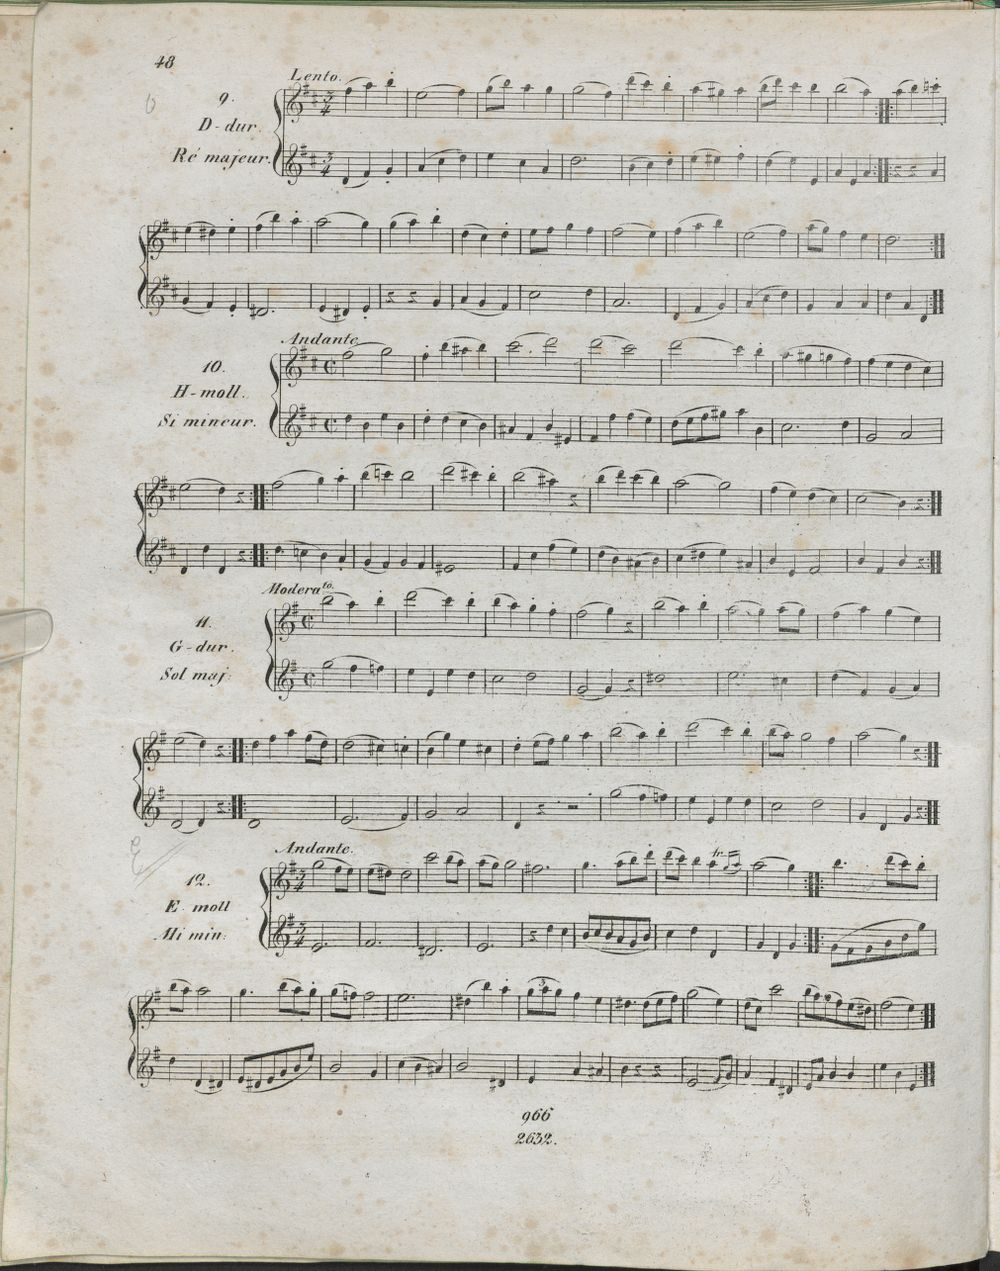 48
Lento.
9.
D-dur.
Ré majeur.
Andante
10.
H-moll.
Si mineur.
Moderato.
11.
G-dur.
Sol maj:
Andante.
12.
E moll
Mi min:
tr.
3
966
2632.